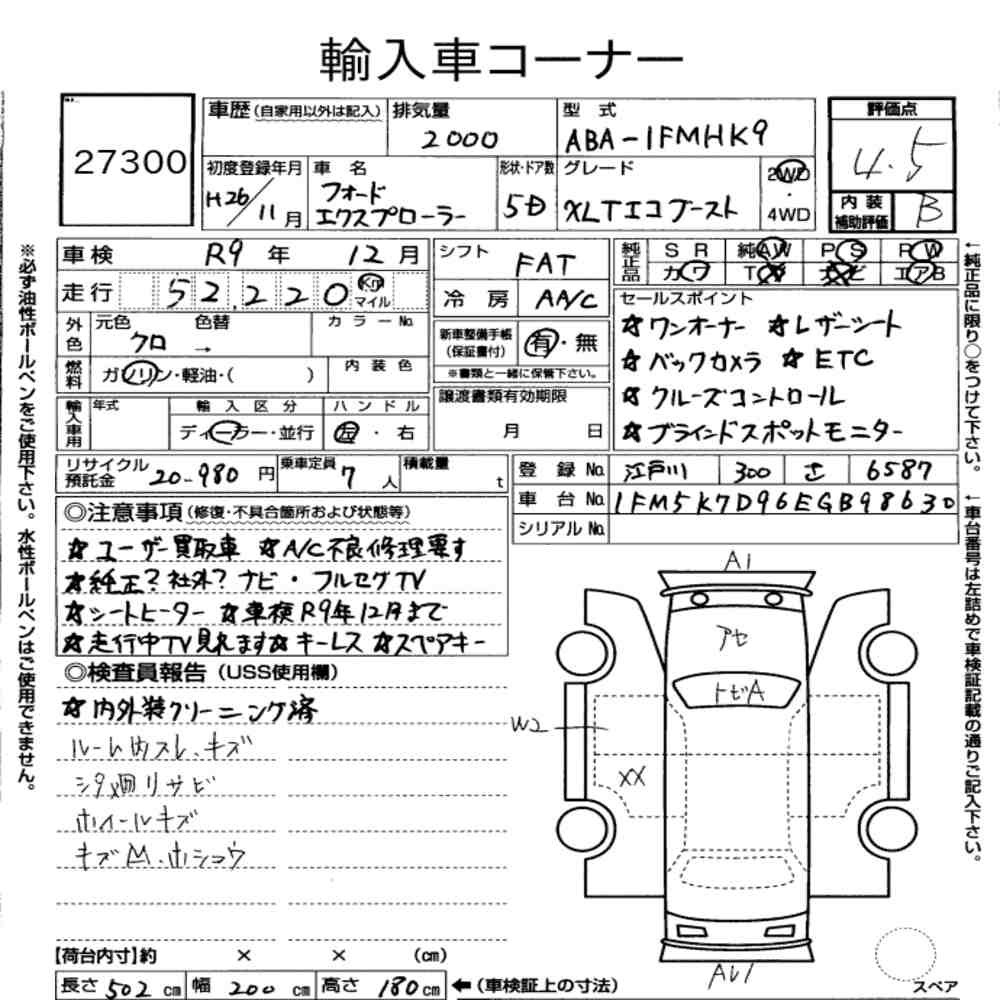 輸入車コーナー
27300
車歴(自家用以外は記入) 排気量 2000 型式 ABA-1FMHK9
評価点 4.5
内装補助評価 B
初度登録年月 H26/11月 車名 フォード エクスプローラー 形状・ドア数 5D グレード XLTエコブースト 2WD・4WD
車検 R9年 12月 シフト FAT
走行 52,220 Km マイル 冷房 AA/C
純正品 SR 純AW PS PW
カワ TV ナビ エアB
外色 元色 クロ → 色替 カラーNo.
新車整備手帳(保証書付) 有・無
※書類と一緒に保管下さい。
燃料 ガソリン・軽油・( ) 内装色
輸入車用 年式 輸入区分 ディーラー・並行 ハンドル 左・右
譲渡書類有効期限 月 日
セールスポイント
☆ワンオーナー ☆レザーシート
☆バックカメラ ☆ETC
☆クルーズコントロール
☆ブラインドスポットモニター
リサイクル預託金 20-980円 乗車定員 7人 積載量 t
登録No. 江戸川 300 さ 6587
車台No. 1FM5K7D96EGB98630
シリアルNo.
◎注意事項(修復・不具合箇所および状態等)
☆ユーザー買取車 ☆A/C不良修理要す
☆純正?社外?ナビ・フルセグTV
☆シートヒーター ☆車検R9年12月まで
☆走行中TV見れます☆キーレス ☆スペアキー
◎検査員報告(USS使用欄)
☆内外装クリーニング済
ルーム内スレ、キズ
シタ廻リサビ
ホイールキズ
キズM.ホシュウ
A1
アセ
トビA
W2
XX
【荷台内寸】約 × × (cm)
長さ 502 cm 幅 200 cm 高さ 180cm ←(車検証上の寸法)
スペア
※必ず油性ボールペンをご使用下さい。水性ボールペンはご使用できません。
←純正品に限り○をつけて下さい。
←車台番号は左詰めで車検証記載の通りご記入下さい。